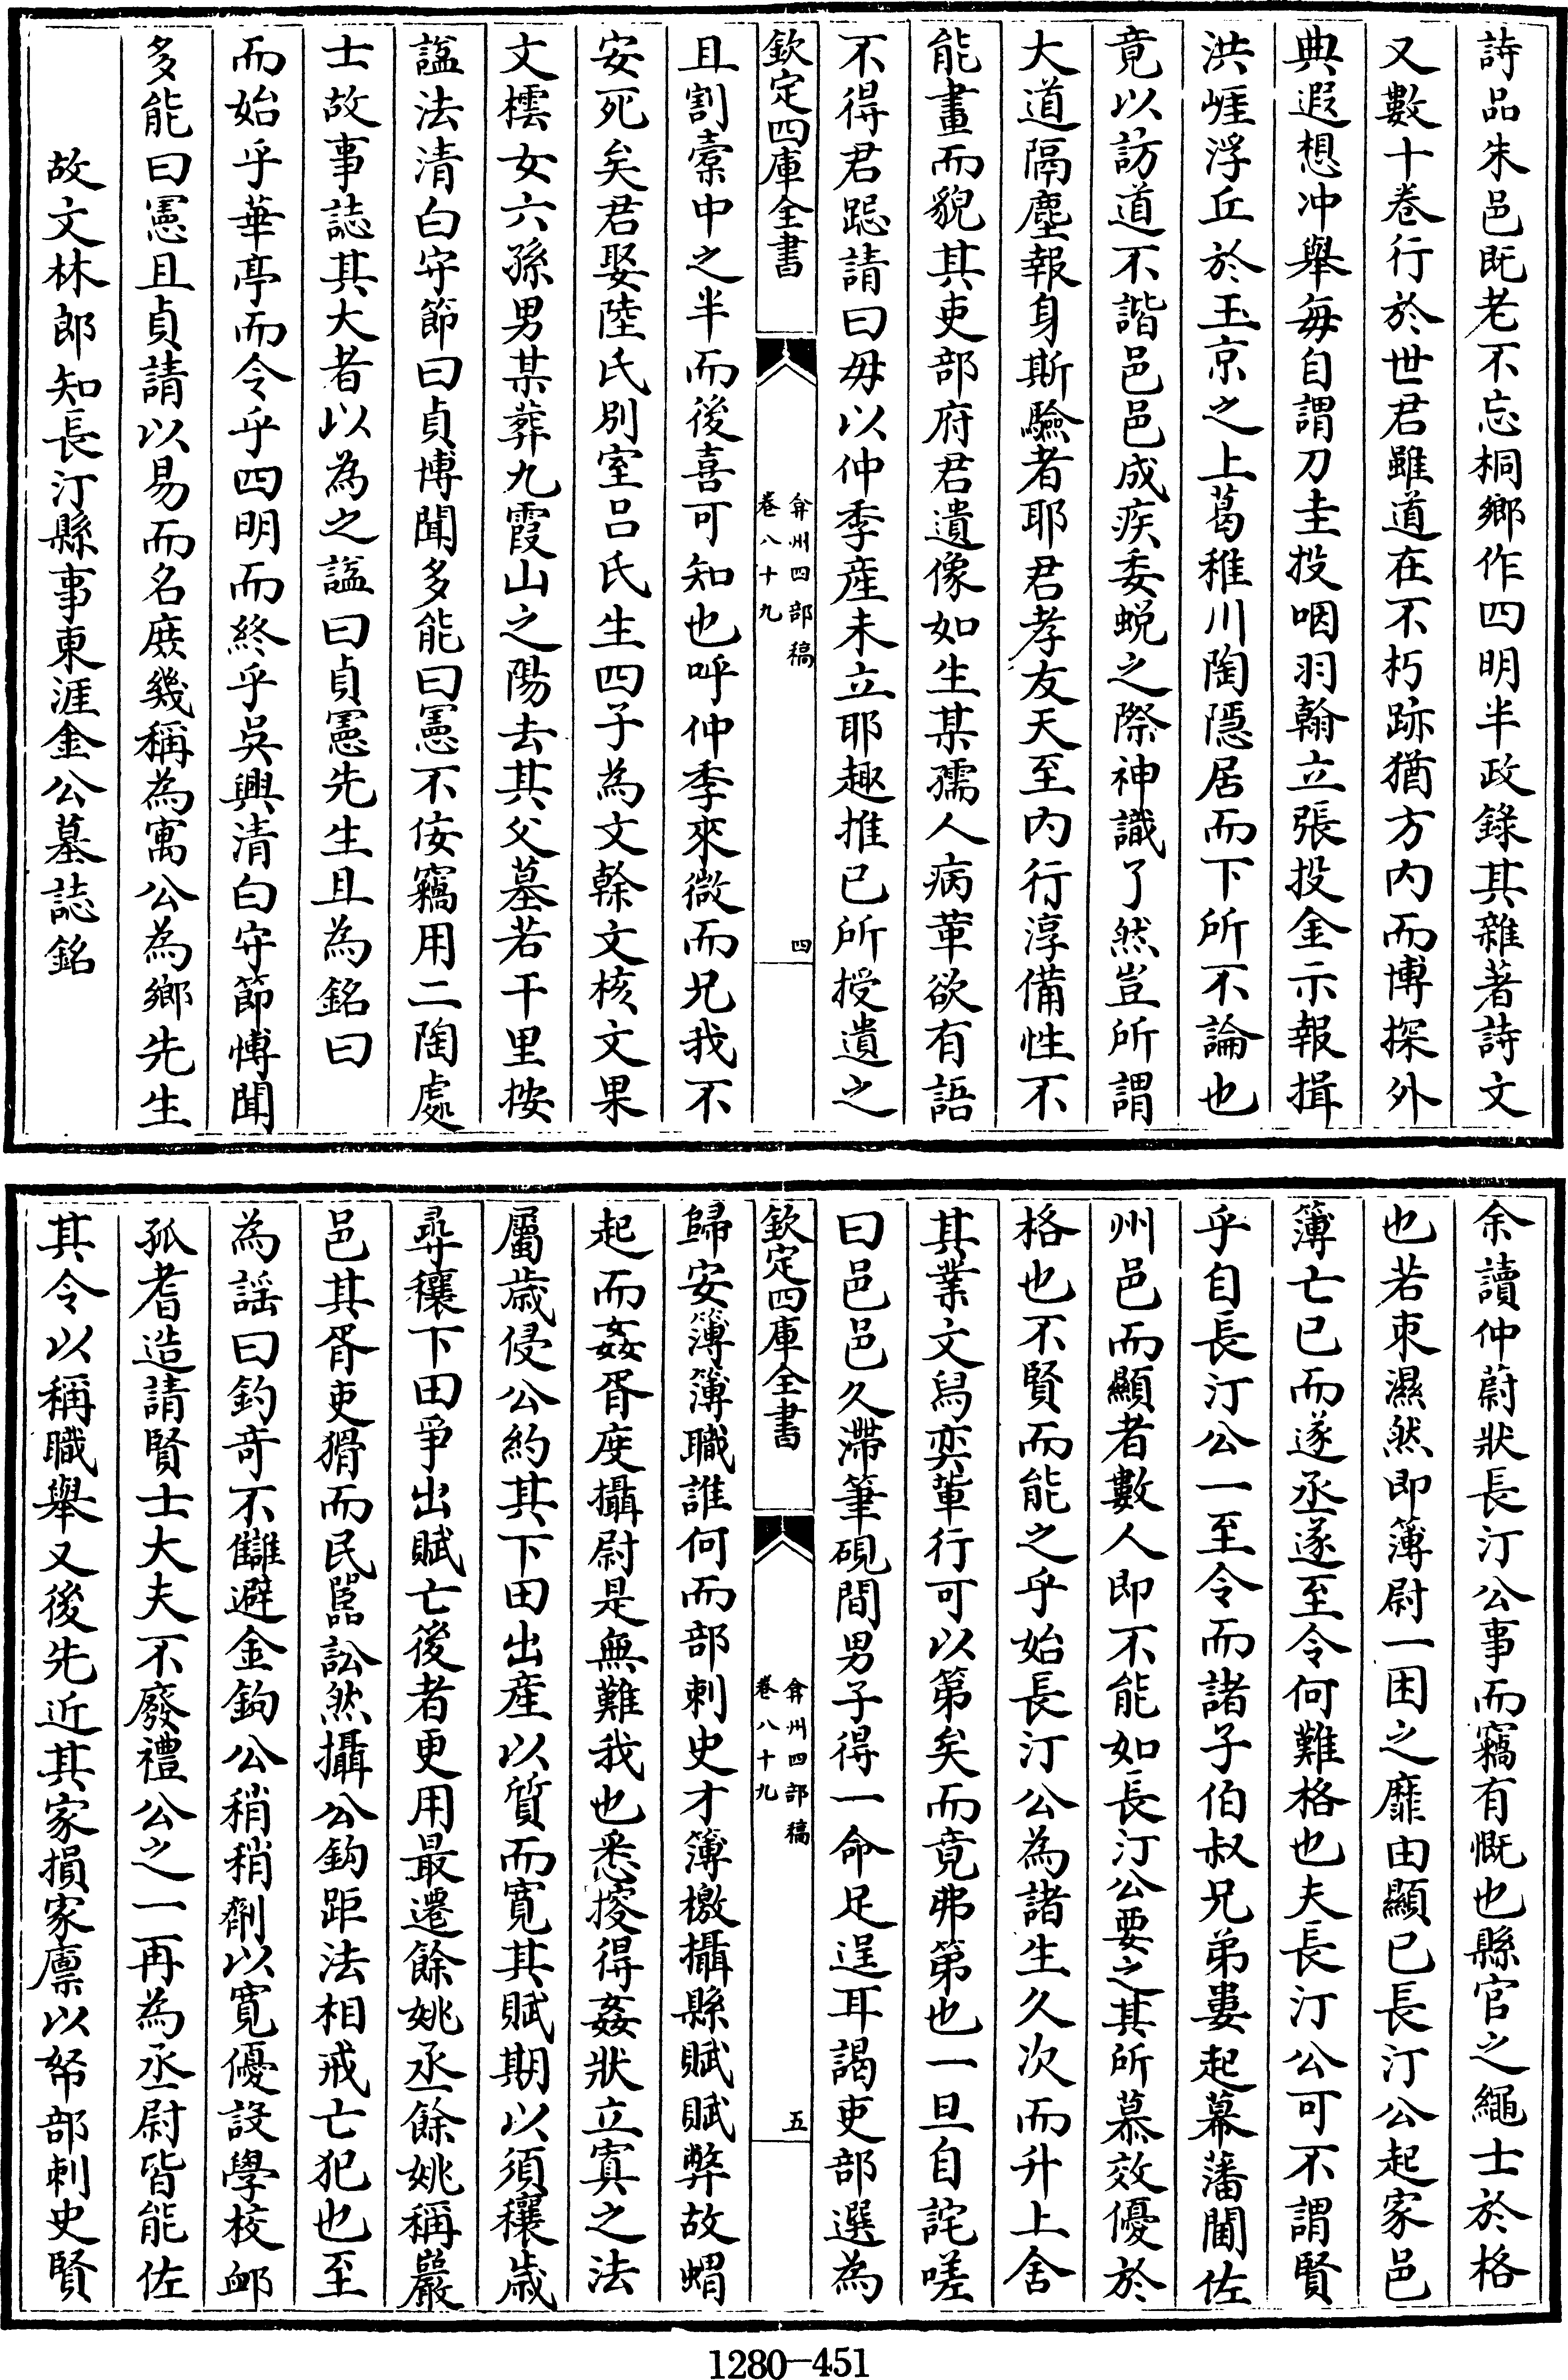 詩品朱邑既老不忘桐鄉作四明半政錄其雜著詩文
又數十卷行於世君雖道在不朽跡猶方内而博探外
典遐想冲舉每自謂刀圭投咽羽翰立張投金示報揖
洪崕浮丘於玉京之上葛稚川陶隱居而下所不論也
竟以訪道不諧邑邑成疾委蜕之際神識了然豈所謂
大道隔塵報身斯驗者耶君孝友天至内行淳備性不
能畫而貌其吏部府君遺像如生某孺人病革欲有語
不得君跽請曰毋以仲季産未立耶趣推已所授遺之
欽定四庫全書
弇州四部稿
卷八十九
四
且割槖中之半而後喜可知也呼仲季來微而兄我不
安死矣君娶陸氏別室吕氏生四子為文榦文核文果
文橒女六孫男某葬九霞山之陽去其父墓若干里按
諡法清白守節曰貞博聞多能曰憲不佞竊用二陶處
士故事誌其大者以為之諡曰貞憲先生且為銘曰
而始乎華亭而令乎四明而終乎吳興清白守節博聞
多能曰憲且貞請以易而名庶幾稱為寓公為鄉先生
故文林郎知長汀縣事東涯金公墓誌銘
余讀仲蔚狀長汀公事而竊有慨也縣官之繩士於格
也若束濕然即薄尉一困之靡由顯已長汀公起家邑
簿亡已而遂丞遂至令何難格也夫長汀公可不謂賢
乎自長汀公一至令而諸子伯叔兄弟婁起幕藩閫佐
州邑而顯者數人即不能如長汀公要之其所慕效優於
格也不賢而能之乎始長汀公為諸生久次而升上舍
其業文舄奕輩行可以第矣而竟弗第也一旦自詫嗟
曰邑邑久滯筆硯間男子得一命足逞耳謁吏部選為
欽定四庫全書
弇州四部稿
卷八十九
五
歸安簿簿職誰何而部刺史才簿檄攝縣賦賦弊故蝟
起而姦胥度攝尉是無難我也悉搜得姦狀立寘之法
屬歳侵公約其下田出産以質而寛其賦期以須穰歳
尋穰下田爭出賦亡後者更用最遷餘姚丞餘姚稱巖
邑其胥吏猾而民嚚訟然攝公鈎距法相戒亡犯也至
為謡曰釣奇不讎避金鉤公稍稍劑以寛優設學校卹
孤耆造請賢士大夫不廢禮公之一再為丞尉皆能佐
其令以稱職舉又後先近其家損家廪以帑部刺史賢
1280—451